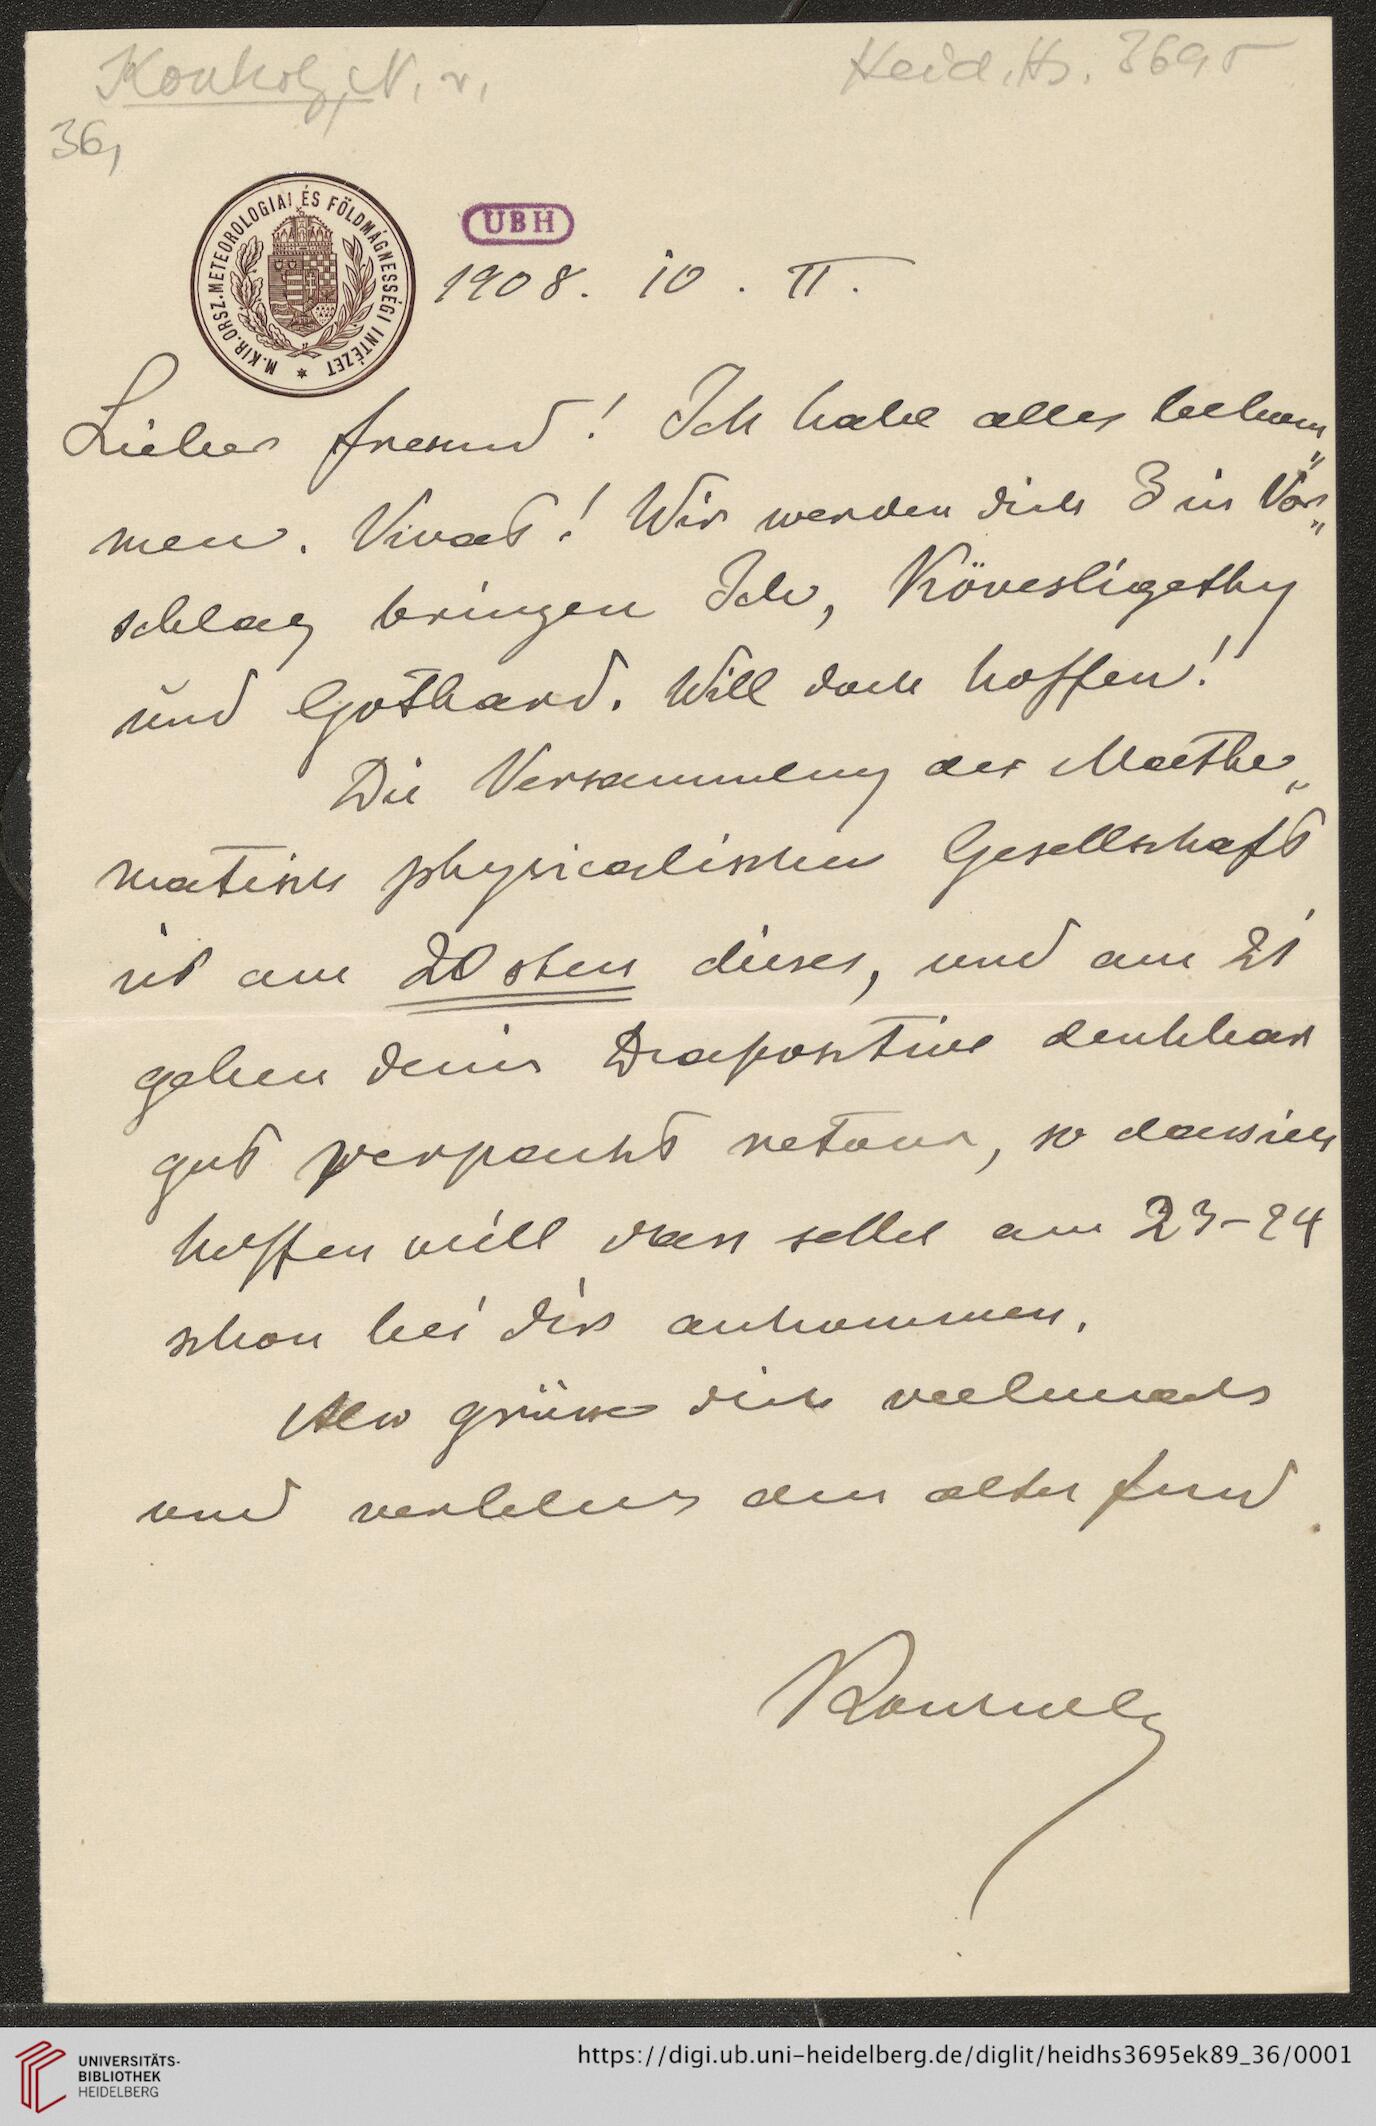 Konkoly, N. v.
Heid. Hs. 3695
36,
M. KIR. ORSZ. METEOROLOGIAI ÉS FÖLDMÁGNESSÉGI INTÉZET
UBH
1908. 10. II.
Lieber Freund! Ich habe alles bekom„
men. Vivat! Wir werden dich 3 in Vor„
schlag bringen Ich, Kövesligethy
und Gothard. Will doch hoffen!
Die Versammlung der Mathe„
matisch physicalischen Gesellschaft
ist am 20sten dieses, und am 21
gehen deine Diapositive denkbar
gut verpackt retour, so dass ich
hoffen will dass selbe am 23–24
schon bei dir ankommen.
Also grüsse dich vielmals
und verbleibe dein alter Freund
Konkoly
UNIVERSITÄTS-
BIBLIOTHEK
HEIDELBERG
https://digi.ub.uni-heidelberg.de/diglit/heidhs3695ek89_36/0001